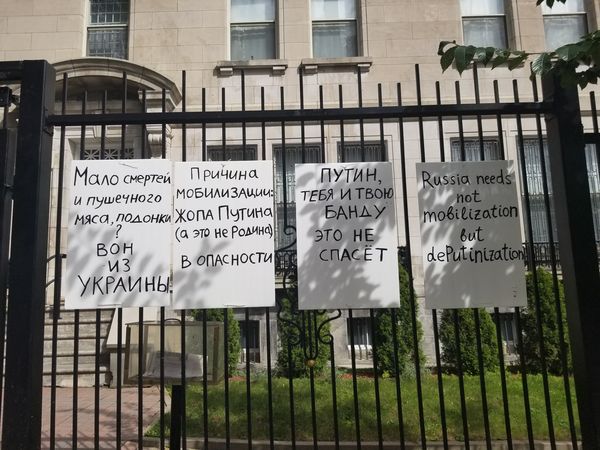 Мало смертей
и пушечного
мяса, подонки
?
ВОН
ИЗ
УКРАИНЫ
Причина
мобилизации:
ЖОПА Путина
(а это не Родина)
В ОПАСНОСТИ
ПУТИН,
ТЕБЯ И ТВОЮ
БАНДУ
ЭТО НЕ
СПАСЁТ
Russia needs
not
mobilization
but
dePutinization